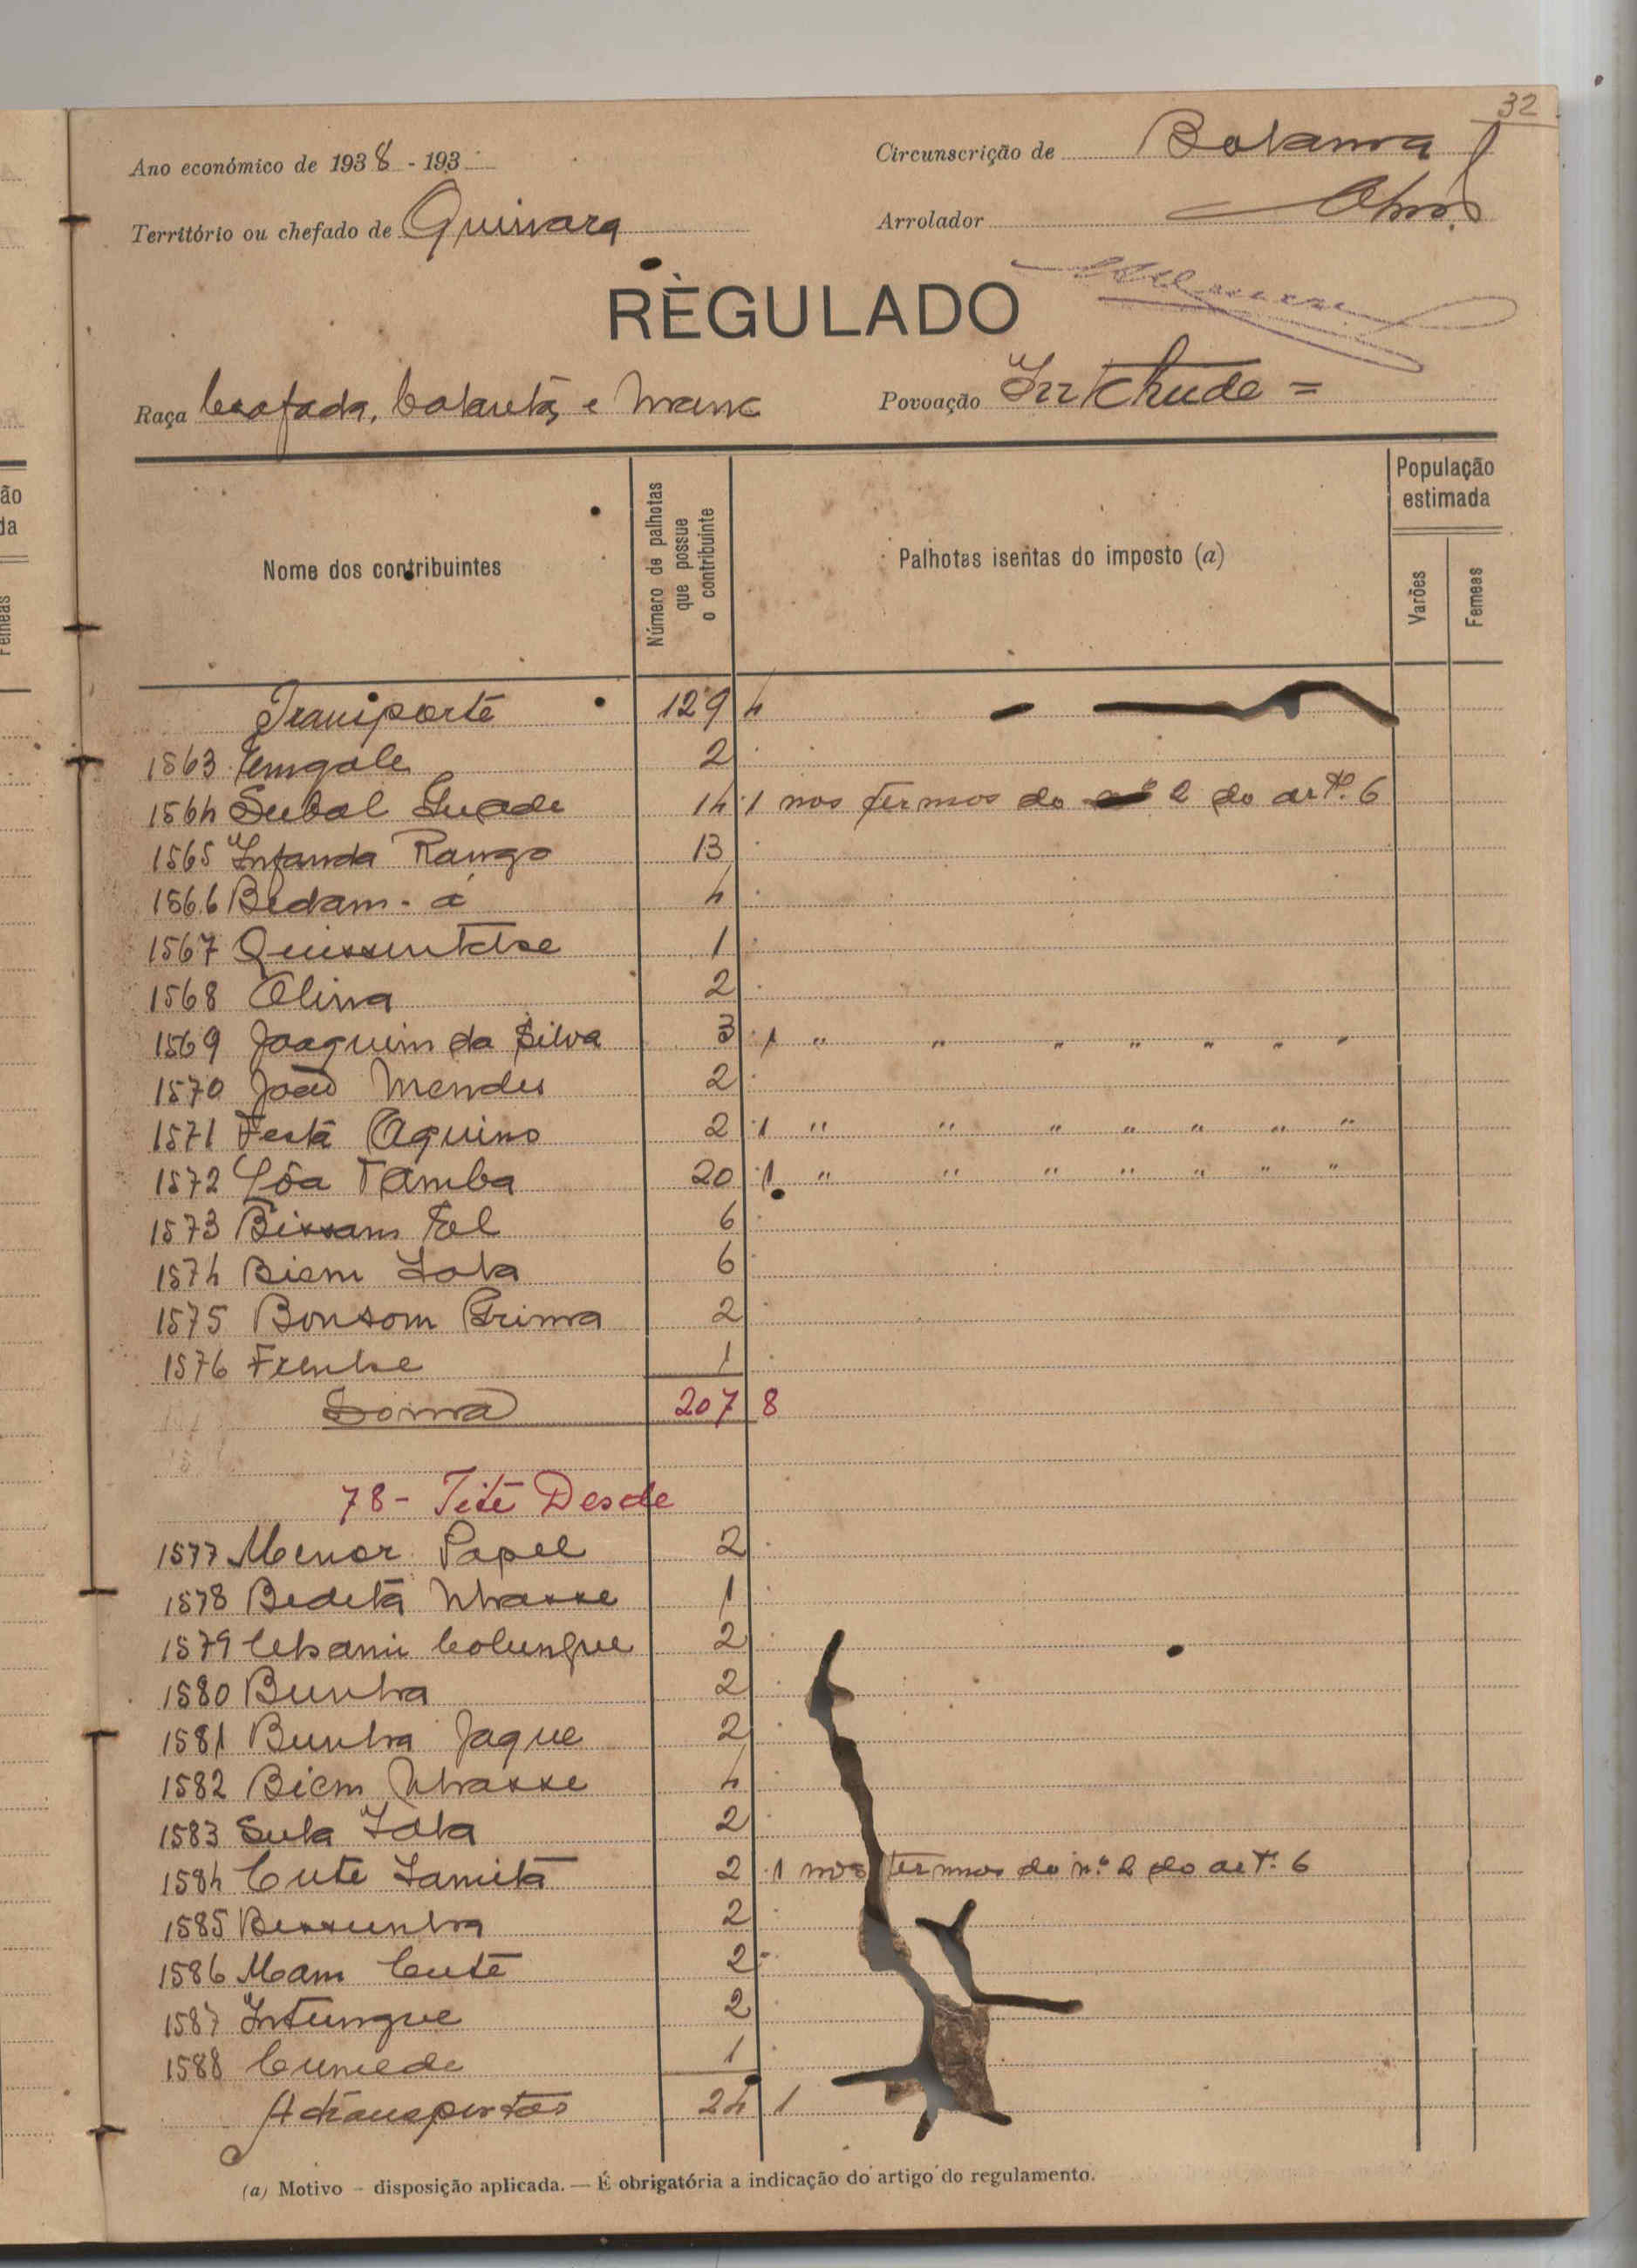 32
Ano económico de 1938 - 193
Circunscrição de Bolama
Território ou chefado de Quinara
Arrolador
RÈGULADO
Raça Beafada, Balanta, e Manc
Povoação Intchude =
Nome dos contribuintes
Número de palhotas que possue o contribuinte
Palhotas isentas do imposto (a)
População estimada
Varões
Femeas
Transporte 129 4
1563 2
1564 14 1 nos termos do 2 do artº. 6
1565 Infanda Rango 13
1566 Bedam - á 4
1567 1
1568 2
1569 Joaquim da Silva 3 1 " " " " " " "
1570 João Mendes 2
1571 Festa Aquino 2 1 " " " " " " "
1572 Lôa Tamba 20 1 " " " " " " "
1573 Bissam 6
1574 Biem 6
1575 Bonsom 2
1576 1
Soma 207 8
78 - Tite Desde
1577 Menor Papel 2
1578 Bedetá Nhasse 1
1579 2
1580 Bunha 2
1581 Bunha Jaque 2
1582 Biem Nhasse 4
1583 Sula 2
1584 Cute 2 1 nos termos do n.º 2 do artº. 6
1585 Bessunha 2
1586 Mam Cuté 2
1587 Intungue 2
1588 1
A transportar 24 1
(a) Motivo - disposição aplicada. — É obrigatória a indicação do artigo do regulamento.